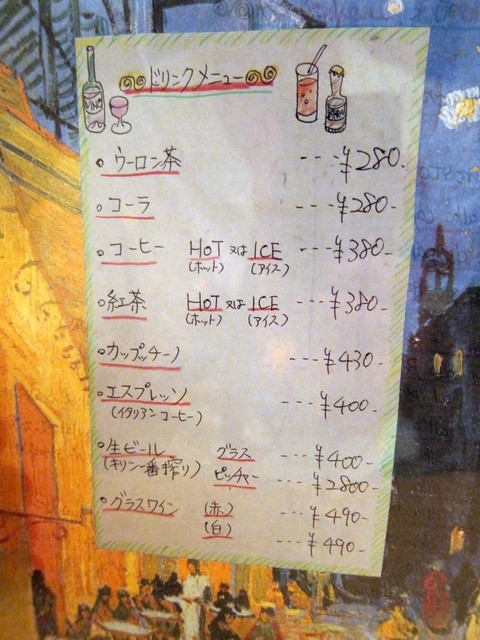 VINO
ドリンクメニュー
ウーロン茶 ---¥280-
コーラ ---¥280-
コーヒー HOT 又は ICE ---¥380-
(ホット) (アイス)
紅茶 HOT 又は ICE ---¥380-
(ホット) (アイス)
カップッチーノ ---¥430-
エスプレッソ ---¥400-
(イタリアンコーヒー)
生ビール グラス ---¥400-
(キリン一番搾り) ピッチャー ---¥2800-
グラスワイン (赤) ---¥490-
(白) ---¥490-